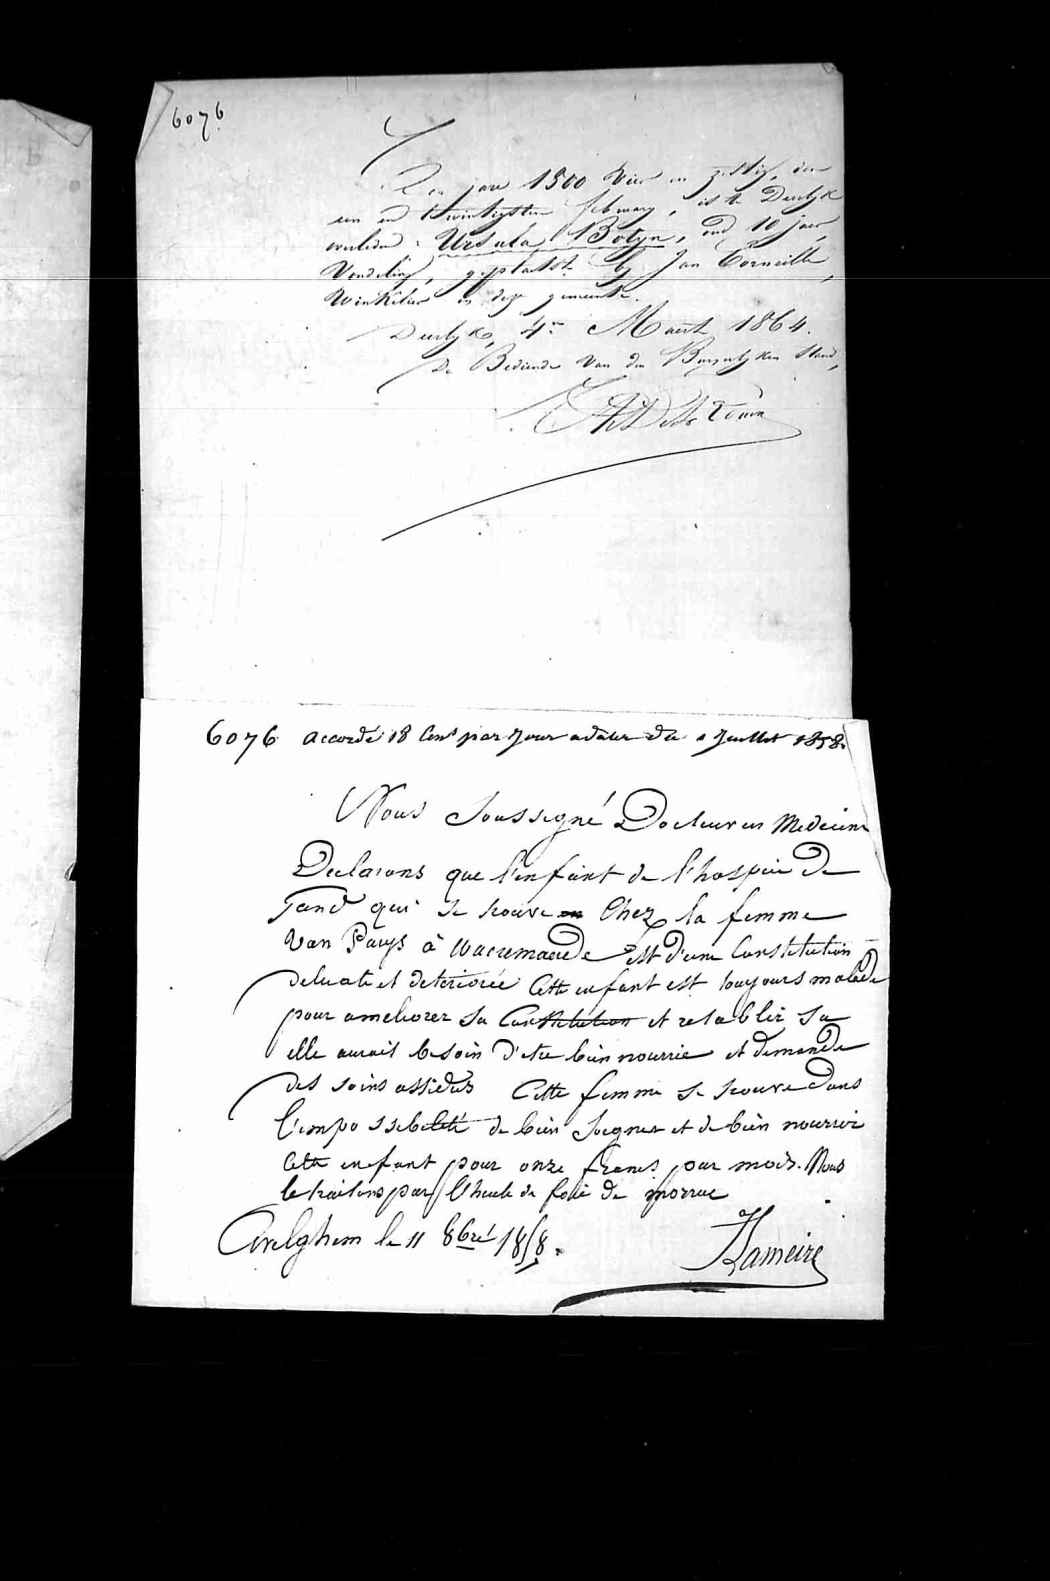 6076
Ten jare 1800 Vier en zestig, den
een en twintigsten february, is te Deerlyk
overleden: Ursula Botyn, oud 10 jaer,
Vondeling, geplaetst by Jan Corneille,
Winkelier in deze gemeente.
Deerlyk, 4en Maert 1864.
De Bediende Van den Burgerlyken Stand,
6076 accordé 18 Cens par Jour a dater du 1 Juillet 1858.
Nous Soussigné Docteur en Medecine
Declarons que l'enfant de l'hospice De
Gand qui se trouve en Chez la femme
Van Pauys à Waermaerde est d'une Constitution
delicate et deteriorée Cette enfant est toujours malade
pour ameliorer sa Constitution et retablir sa
elle aurait besoin d'etre bien nourrie et demande
des soins assidus Cette femme se trouve dans
l'impossebelité de bien Soigner et de bien nourrir
Cette enfant pour onze francs par mois. Nous
le traitons par l'huile de foie de morrue
Avelghem le 11 8bre 1858.
Lameire